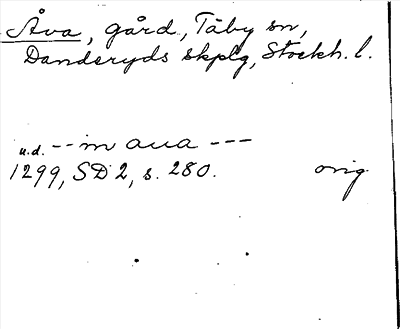 Åva, gård, Täby sn,
Danderyds skplg, Stockh. l.
u.d. -- in aua ---
1299, SD 2, s. 280. orig